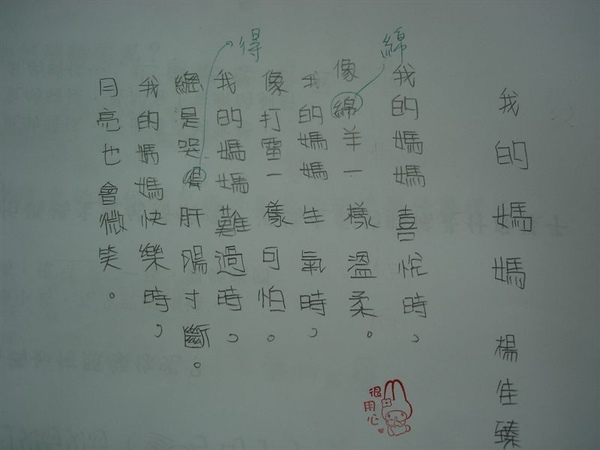 我的媽媽 楊佳臻
我的媽媽喜悅時，
像綿羊一樣溫柔。
我的媽媽生氣時，
像打雷一樣可怕。
我的媽媽難過時，
總是哭得肝腸寸斷。
我的媽媽快樂時，
月亮也會微笑。
綿
得
很用心